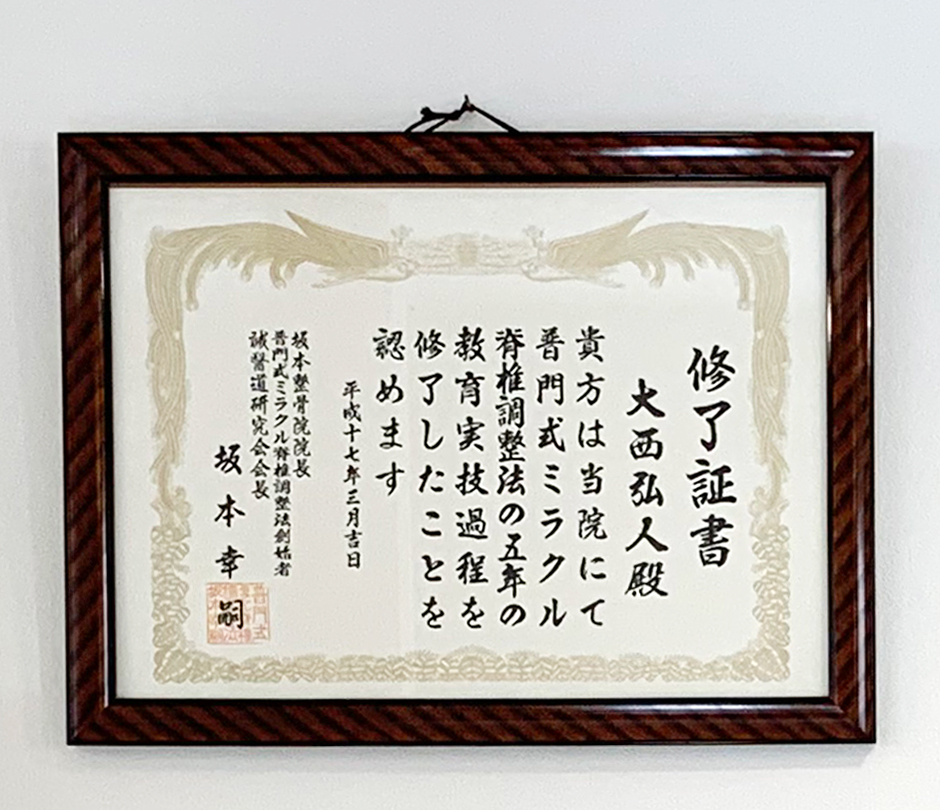 修了証書
大西弘人殿
貴方は当院にて
普門式ミラクル
脊椎調整法の五年の
教育実技過程を
修了したことを
認めます
平成十七年三月吉日
坂本整骨院院長
普門式ミラクル脊椎調整法創始者
誠醫道研究会会長
坂本幸嗣